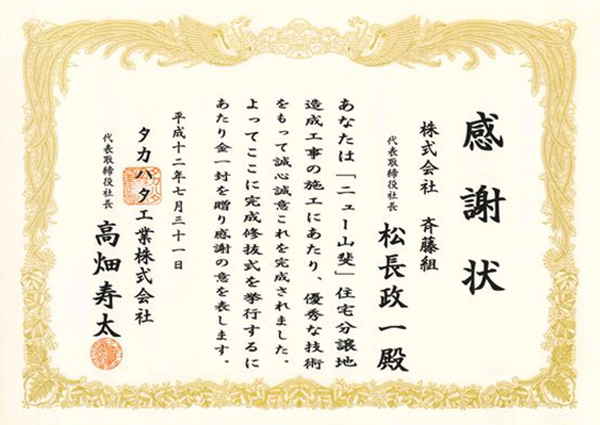 感謝状
株式会社 斉藤組
代表取締役社長 松長政一殿
あなたは「ニュー山斐」住宅分譲地
造成工事の施工にあたり、優秀な技術
をもって誠心誠意これを完成されました。
よってここに完成修抜式を挙行するに
あたり金一封を贈り感謝の意を表します。
平成十二年七月三十一日
タカハタ工業株式会社
代表取締役社長 高畑寿太